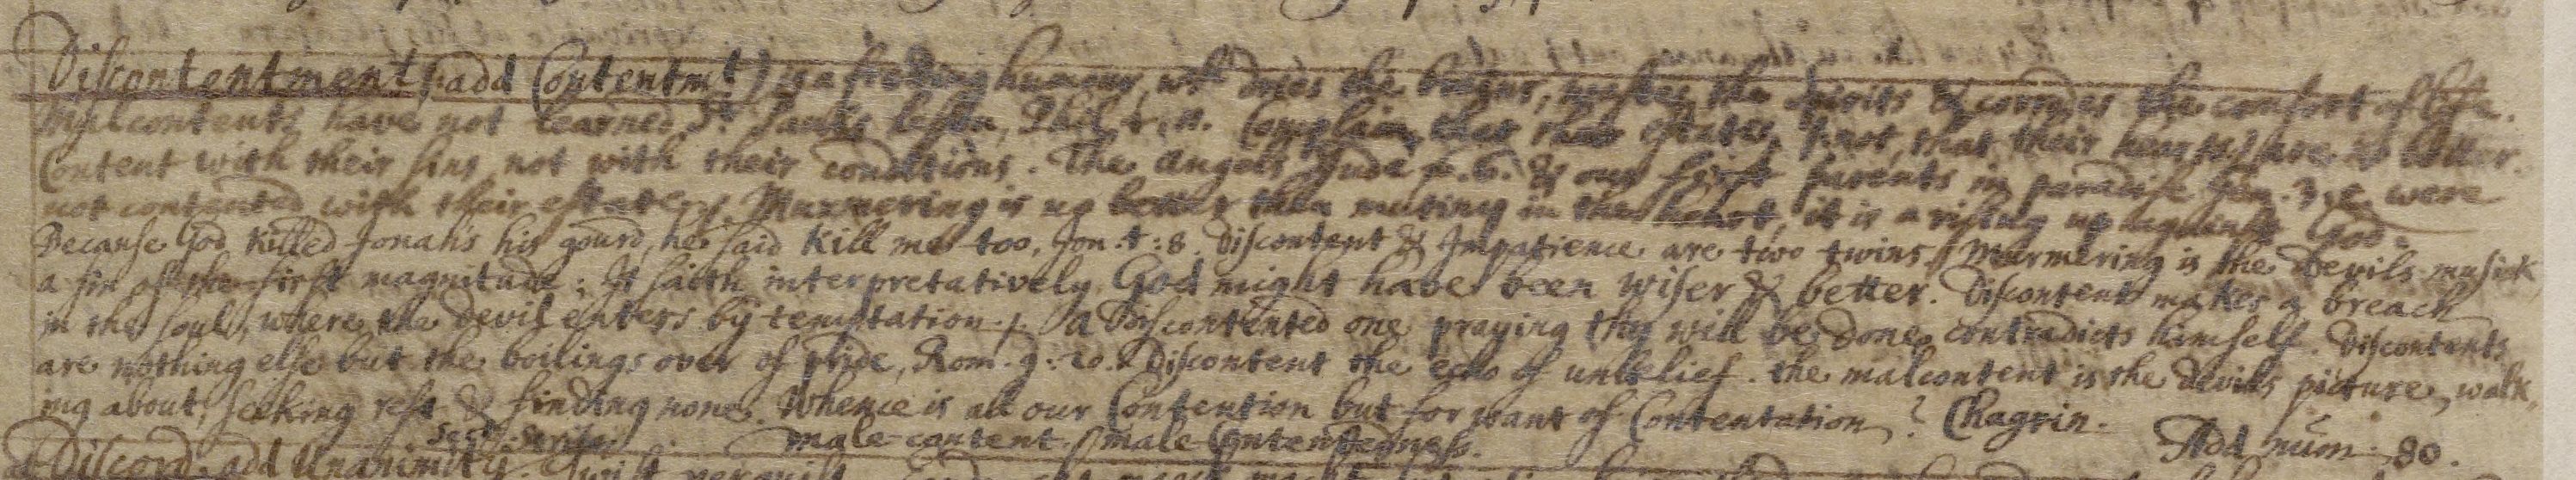 Discontentment (: add Contentmt) is a freting humour, wch dries the brains, wastes the spirits & corrodes the comfort of life.
Malcontents have not learned St Pauls lesson, Phil. 4. 11. Complain that their estates, & not, that their hearts are no better.
Content with their sins, not with their conditions. The angels Jude v. 6. & our first parents in paradise Gen. 3. were
not contented with their estate. Murmering is no better then mutiny in the heart, it is a rising up against God.
Because God killed Jonah's his gourd, he said kill me too, Jon. 4: 8. Discontent & Impatience are two twins. Murmering is the Devils musick,
a sin of the first magnitude: It saith interpretatively, God might have been wiser & better. Discontent makes a breach
in the soul, where the devil enters by temptation. A discontented one praying thy will be done, contradicts himself. Discontents
are nothing else but the boilings over of pride, Rom. 9: 20. Discontent the echo of unbelief. the malcontent is the devils picture, walk,
ing about, seeking rest & finding none. Whence is all our Contention but for want of Contentation? Chagrin.
male-content. male-Contentedness. Add num. 80.
Discord: add Unanimity.